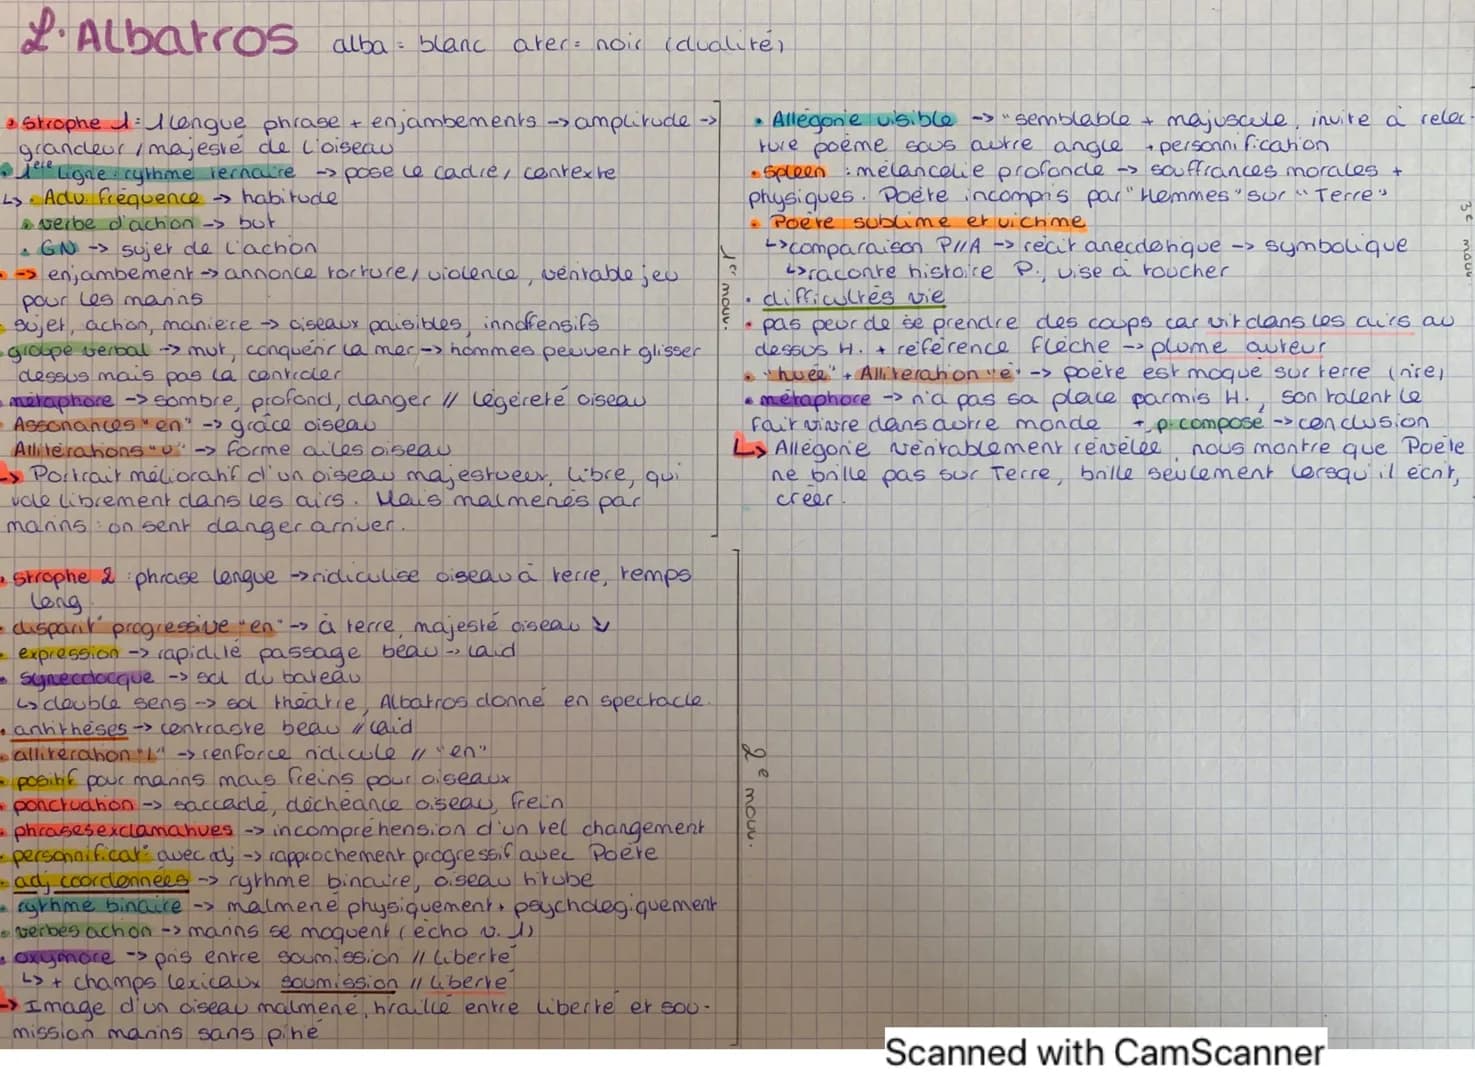 L'Albatros alba = blanc ater = noir (dualité)
• strophe 1 : 1 longue phrase + enjambements -> amplitude ->
grandeur / majesté de l'oiseau
• 1ère ligne : rythme ternaire -> pose le cadre, contexte
↳ • Adv fréquence -> habitude
• verbe d'action -> but
• GN -> sujet de l'action
• -> enjambement -> annonce torture / violence, véritable jeu
pour les marins
• sujet, action, manière -> oiseaux paisibles, innofensifs
• groupe verbal -> mvt, conquérir la mer -> hommes peuvent glisser
dessus mais pas la controler
• métaphore -> sombre, profond, danger // légèreté oiseau
• Assonances "en" -> grâce oiseau
Allitérations "v" -> forme ailes oiseau
↳ Portrait mélioratif d'un oiseau majestueux, libre, qui
vole librement dans les airs. Mais malmenés par
marins : on sent danger arriver.
1er mouv.
• strophe 2 : phrase longue -> ridiculise oiseau à terre, temps
long
• disparit° progressive "en" -> à terre, majesté oiseau ↘
• expression -> rapidité passage beau -> laid
• synecdocque -> sol du bateau
↳ double sens -> sol théâtre, Albatros donné en spectacle.
• antithéses -> contraste beau // laid
• allitération "L" -> renforce ridicule // "en"
• positif pour marins mais freins pour oiseaux
• ponctuation -> saccadé, déchéance oiseau, frein
• phrases exclamatives -> incompréhension d'un tel changement
• personnificat° avec adj -> rapprochement progressif avec Poète
• adj coordonnées -> rythme binaire, oiseau titube
• rythme binaire -> malmené physiquement + psychologiquement
• verbes action -> marins se moquent (écho v. 1)
• oxymore -> pris entre soumission // liberté
↳ + champs lexicaux soumission // liberté
↳ Image d'un oiseau malmené, tiraillé entre liberté et sou-
mission marins sans pitié
2e mouv.
• Allégorie visible -> "semblable + majuscule, invite à relec-
ture poème sous autre angle + personnification
• Spleen : mélancolie profonde -> souffrances morales +
physiques. Poète incompris par "Hommes" sur "Terre"
• Poète sublime et victime
↳ comparaison P//A -> récit anecdotique -> symbolique
↳ raconte histoire P., vise à toucher
• difficultrés vie
• pas peur de se prendre des coups car vit dans les airs au
dessus H. + référence flèche -> plume auteur
• "huée" + Allitération "é" -> poète est moqué sur terre (rire)
• métaphore -> n'a pas sa place parmis H., son talent le
fait vivre dans autre monde + p. composé -> conclusion
↳ Allégorie véritablement révélée, nous montre que Poète
ne brille pas sur Terre, brille seulement lorsqu'il écrit,
créer.
3e mouv.
Scanned with CamScanner